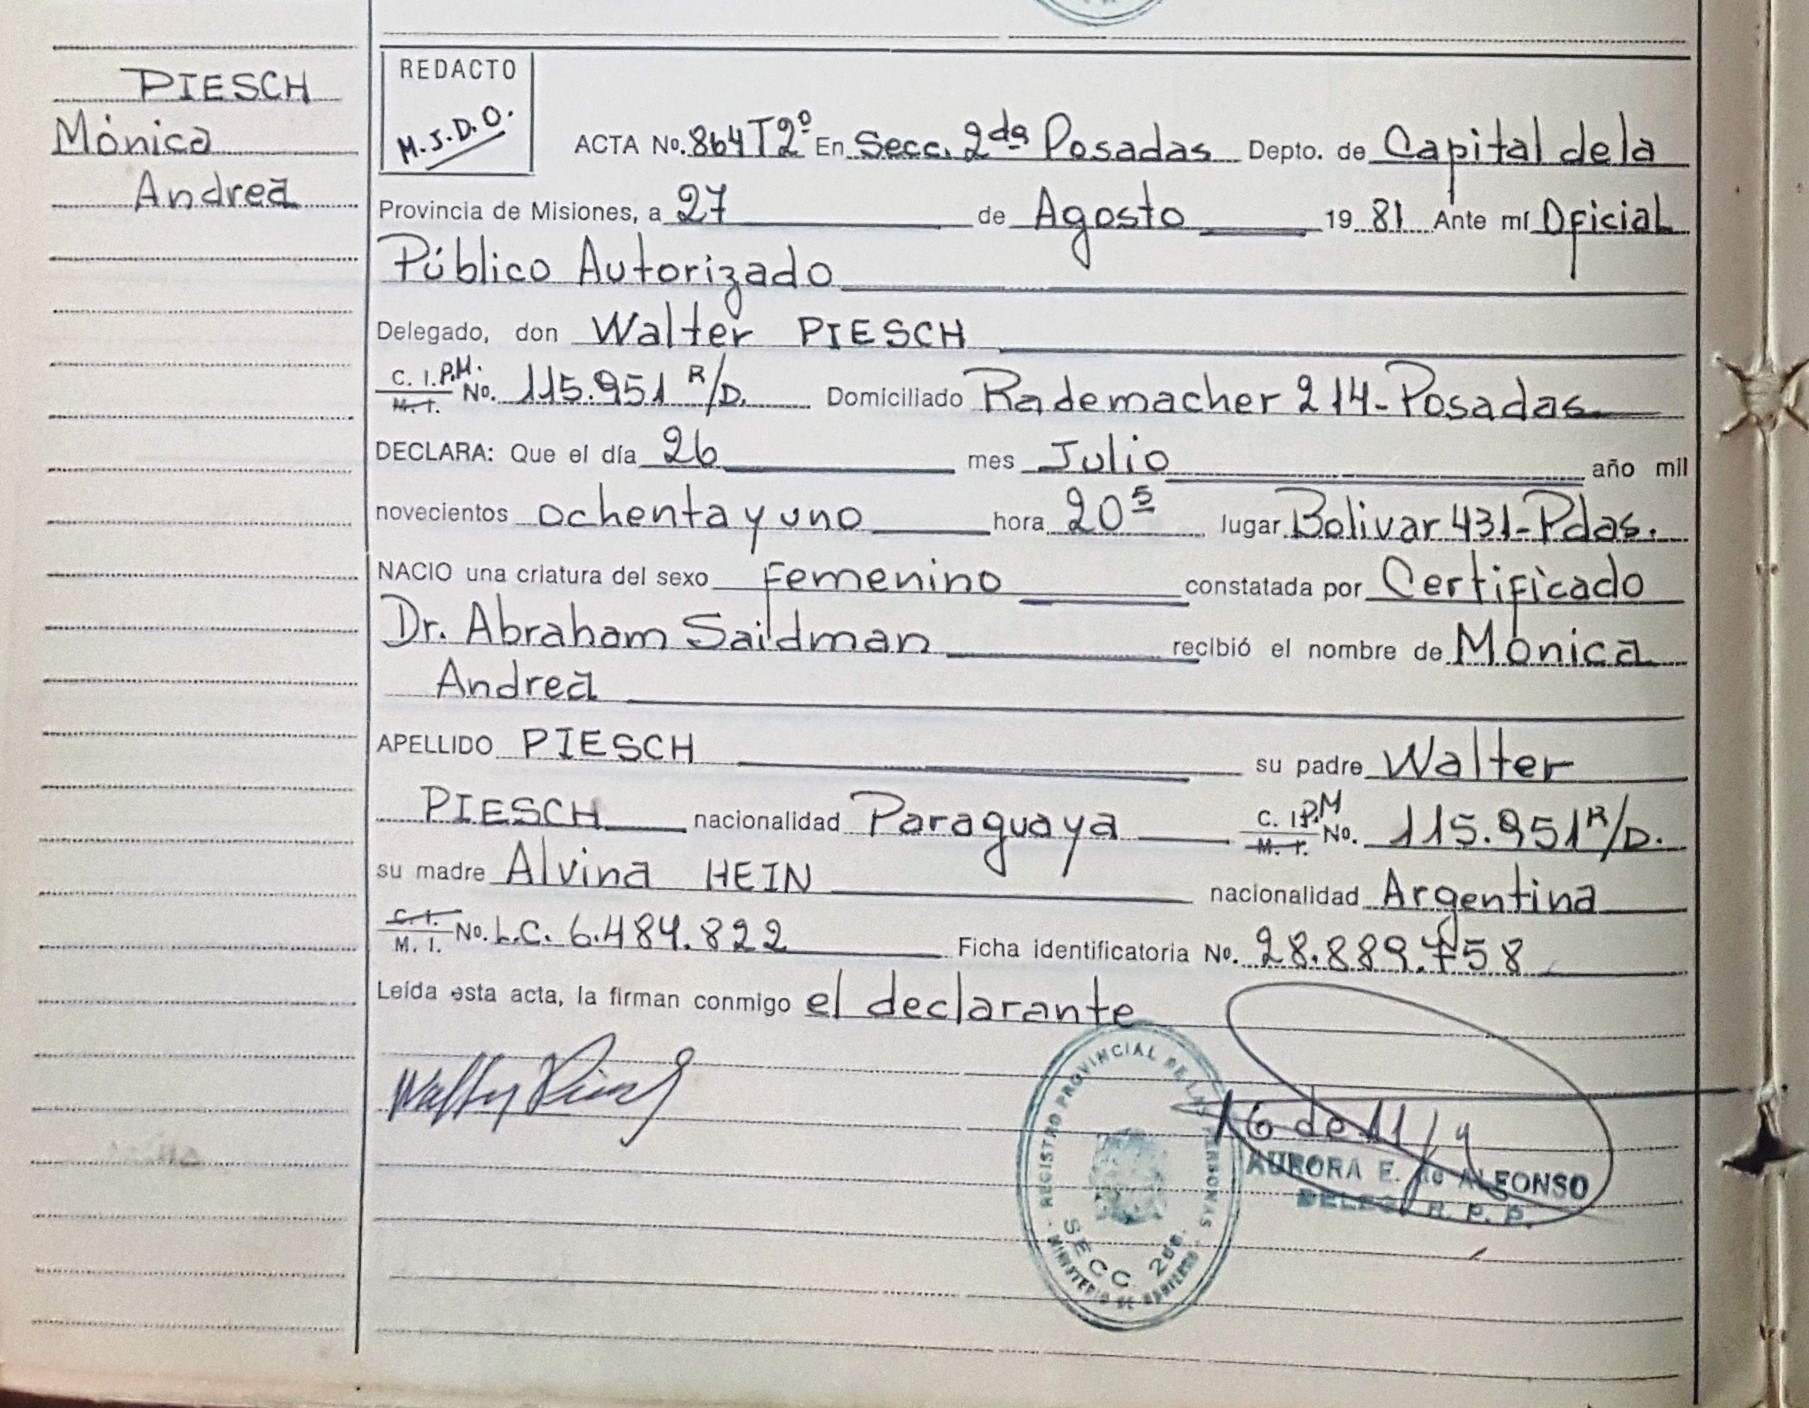 PIESCH
Mónica
Andrea
REDACTO
M.J.D.O.
ACTA No. 864T2º En Secc. 2da Posadas Depto. de Capital dela
Provincia de Misiones, a 27 de Agosto 19 81 Ante mí Oficial
Público Autorizado
Delegado, don Walter PIESCH
C. I.P.M. M. I. No. 115.951 R/D. Domiciliado Rademacher 214-Posadas
DECLARA: Que el día 26 mes Julio año mil
novecientos ochenta y uno hora 20 5 lugar Bolivar 431-Pdas.
NACIO una criatura del sexo femenino constatada por Certificado
Dr. Abraham Saidman recibió el nombre de Mónica
Andrea
APELLIDO PIESCH su padre Walter
PIESCH nacionalidad Paraguaya C. I P.M M. I. No. 115.951R/D.
su madre Alvina HEIN nacionalidad Argentina
C. I. M. I. No. L.C. 6.484.822 Ficha identificatoria No. 28.889.758
Leída esta acta, la firman conmigo el declarante
REGISTRO PROVINCIAL DE LAS PERSONAS
SECC. 2da.
MINISTERIO DE GOBIERNO
AURORA E. de ALFONSO
DELEG. R. P. P.